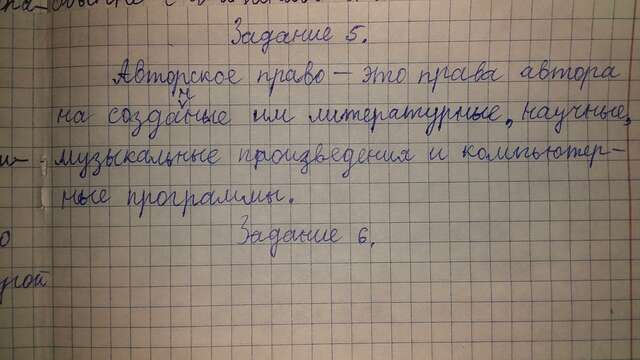 Задание 5.
Авторское право – это права автора
на созданные им литературные, научные,
музыкальные произведения и компьютер-
ные программы.
Задание 6.